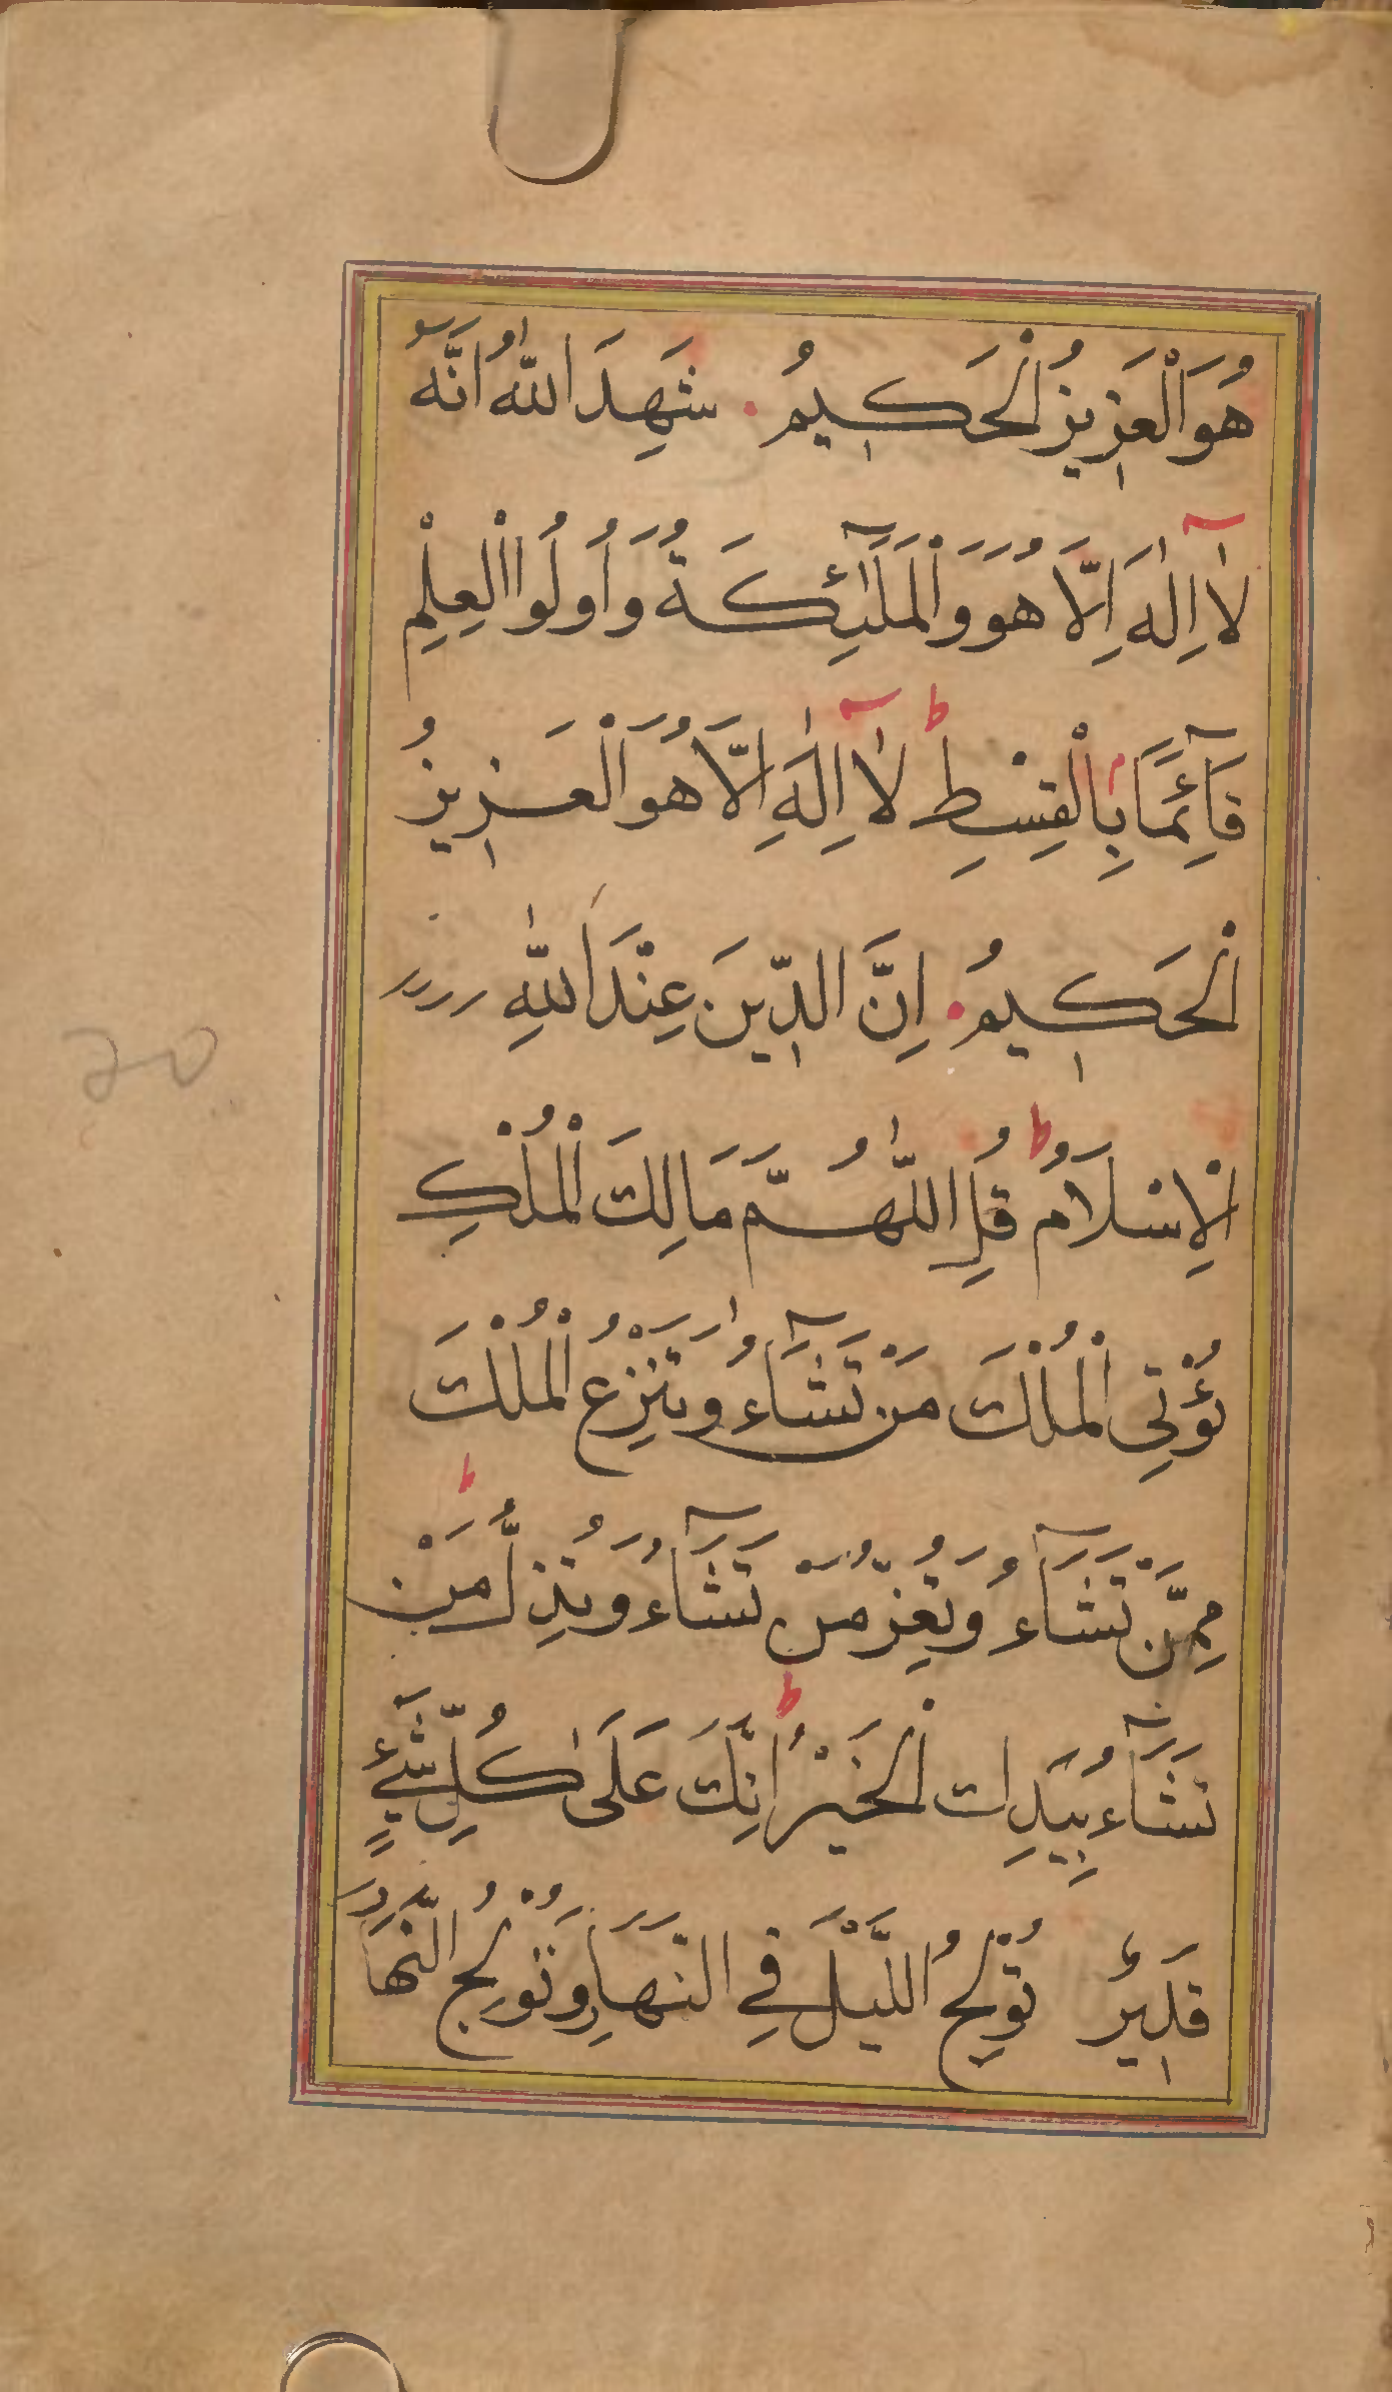 هُوَ الْعَزِيزُ الْحَكِيمُ شَهِدَ اللّٰهُ اَنَّهُ
لَآ اِلٰهَ اِلَّا هُوَ وَالْمَلٰٓئِكَةُ وَاُولُوا الْعِلْمِ
قَآئِمًا بِالْقِسْطِ ط لَآ اِلٰهَ اِلَّا هُوَ الْعَزِيزُ
الْحَكِيمُ اِنَّ الدِّينَ عِنْدَ اللّٰهِ
الْاِسْلَامُ ط قُلِ اللّٰهُمَّ مَالِكَ الْمُلْكِ
تُؤْتِي الْمُلْكَ مَنْ تَشَآءُ وَتَنْزِعُ الْمُلْكَ
مِمَّنْ تَشَآءُ وَتُعِزُّ مَنْ تَشَآءُ وَتُذِلُّ مَنْ ط
تَشَآءُ بِيَدِكَ الْخَيْرُ ط اِنَّكَ عَلَى كُلِّ شَيْءٍ
قَدِيرٌ تُوْلِجُ اللَّيْلَ فِي النَّهَارِ وَتُوْلِجُ النَّهَارَ
20